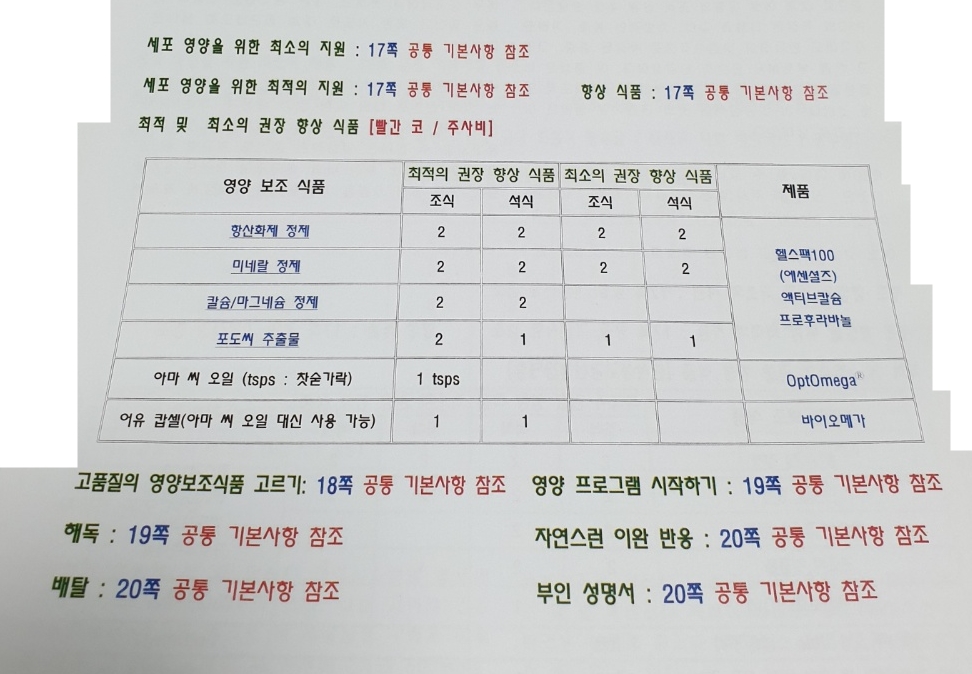 세포 영양을 위한 최소의 지원 : 17쪽 공통 기본사항 참조
세포 영양을 위한 최적의 지원 : 17쪽 공통 기본사항 참조 향상 식품 : 17쪽 공통 기본사항 참조
최적 및 최소의 권장 향상 식품 [빨간 코 / 주사비]
영양 보조 식품 최적의 권장 향상 식품 최소의 권장 향상 식품 제품
조식 석식 조식 석식
항산화제 정제 2 2 2 2
미네랄 정제 2 2 2 2
칼슘/마그네슘 정제 2 2
포도씨 추출물 2 1 1 1
헬스팩100
(에센셜즈)
액티브칼슘
프로후라바놀
아마 씨 오일 (tsps : 찻숟가락) 1 tsps OptOmega®
어유 캅셀(아마 씨 오일 대신 사용 가능) 1 1 바이오메가
고품질의 영양보조식품 고르기: 18쪽 공통 기본사항 참조 영양 프로그램 시작하기 : 19쪽 공통 기본사항 참조
해독 : 19쪽 공통 기본사항 참조 자연스런 이완 반응 : 20쪽 공통 기본사항 참조
배탈 : 20쪽 공통 기본사항 참조 부인 성명서 : 20쪽 공통 기본사항 참조